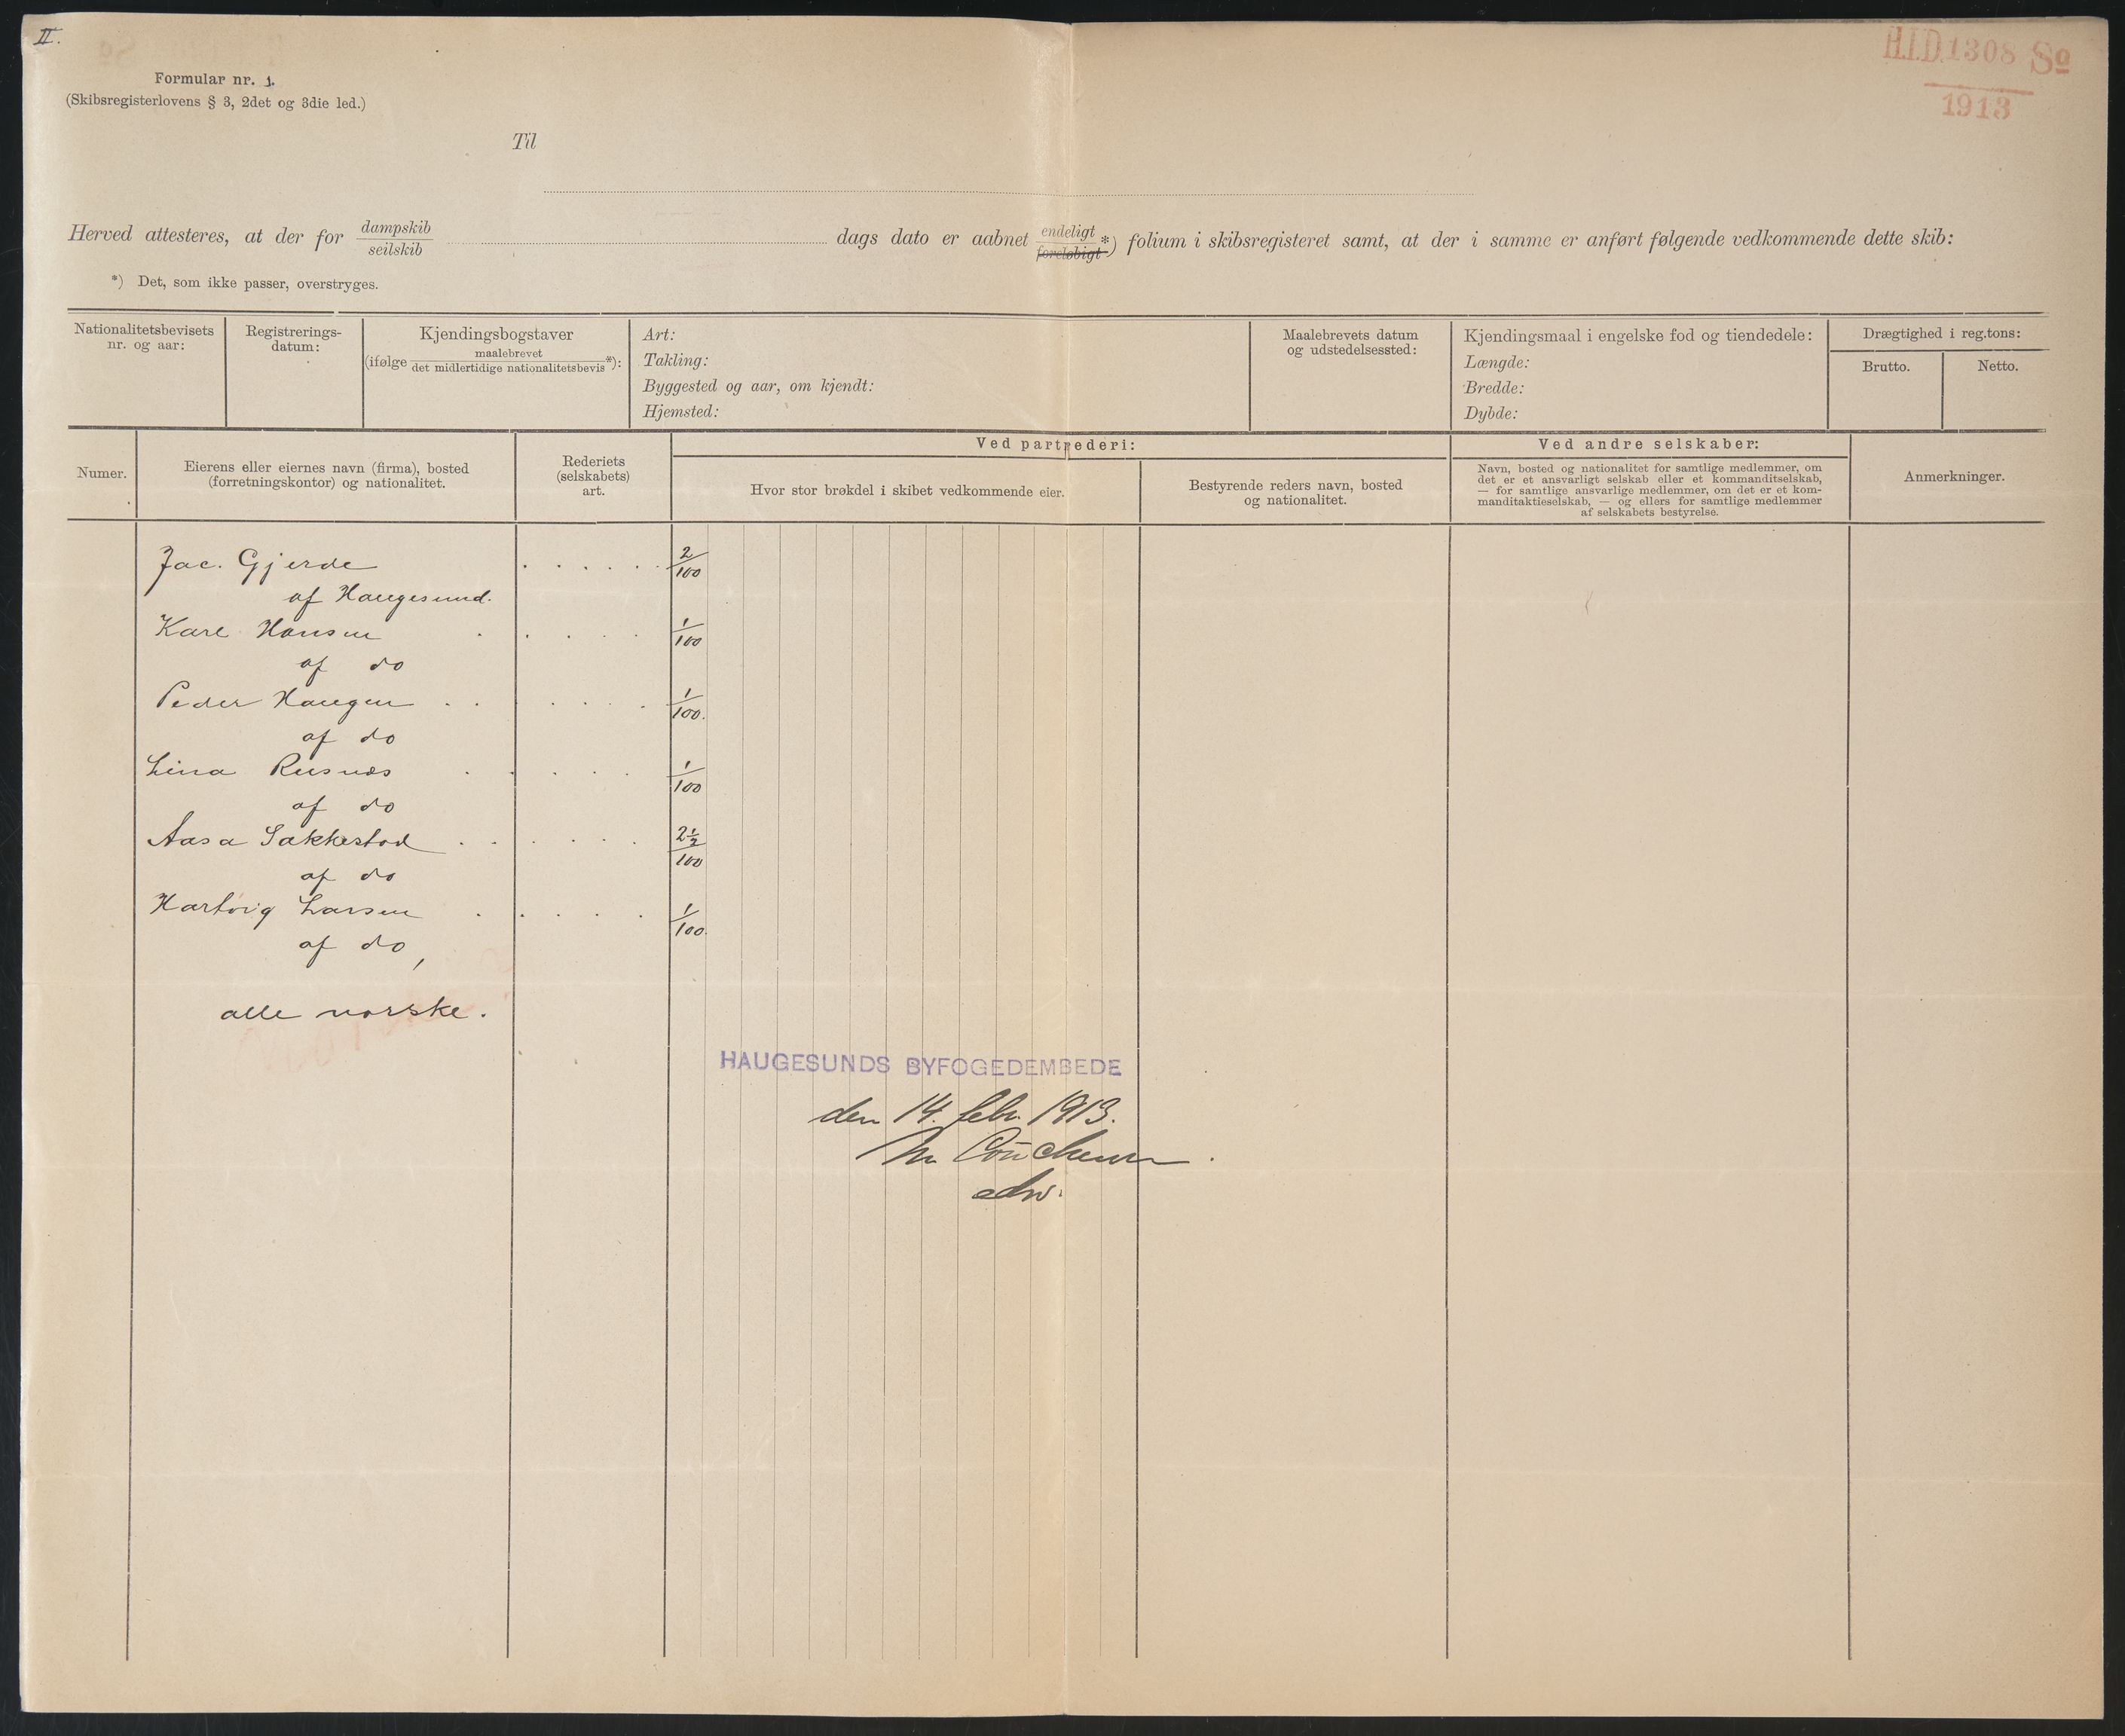 II.
H.I.D. 1308 So
1913
Formular nr. 1.
(Skibsregisterlovens § 3, 2det og 3die led.)
Til
Herved attesteres, at der for dampskib/seilskib dags dato er aabnet endeligt/foreløbigt *) folium i skibsregisteret samt, at der i samme er anført følgende vedkommende dette skib:
*) Det, som ikke passer, overstryges.
Nationalitetsbevisets
nr. og aar:
Registrerings-
datum:
Kjendingsbogstaver
(ifølge maalebrevet/det midlertidige nationalitetsbevis *):
Art:
Takling:
Byggested og aar, om kjendt:
Hjemsted:
Maalebrevets datum
og udstedelsessted:
Kjendingsmaal i engelske fod og tiendedele:
Længde:
Bredde:
Dybde:
Drægtighed i reg.tons:
Brutto. Netto.
Numer.
Eierens eller eiernes navn (firma), bosted
(forretningskontor) og nationalitet.
Rederiets
(selskabets)
art.
Ved partrederi:
Hvor stor brøkdel i skibet vedkommende eier.
Bestyrende reders navn, bosted
og nationalitet.
Ved andre selskaber:
Navn, bosted og nationalitet for samtlige medlemmer, om
det er et ansvarligt selskab eller et kommanditselskab,
— for samtlige ansvarlige medlemmer, om det er et kom-
manditaktieselskab, — og ellers for samtlige medlemmer
af selskabets bestyrelse.
Anmerkninger.
Jac. Gjerde . . . . . . 2/100
af Haugesund.
Karl Hansen . . . . . 1/100
af do
Peder Haugen . . . . . . 1/100.
af do
Lina Rusnes . . . . . 1/100
af do
Aasa Sakkestad . . . . . 2½/100
af do
Hartvig Larsen . . . . . 1/100.
af do,
alle norske.
HAUGESUNDS BYFOGEDEMBEDE
den 14. febr. 1913.